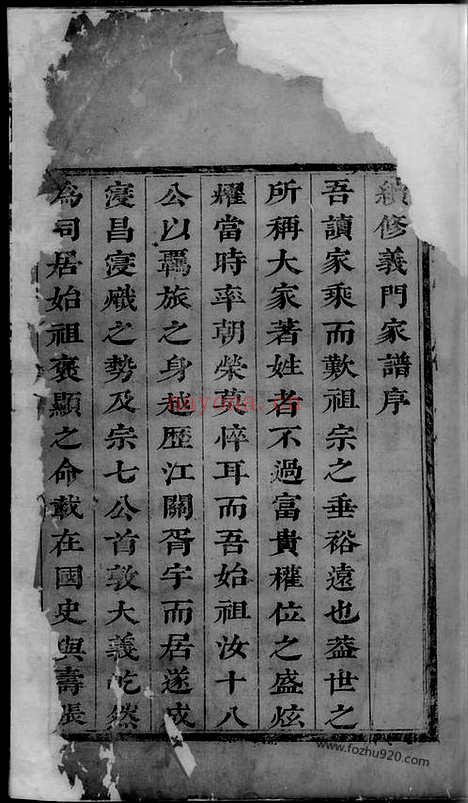 續修義門家譜序
吾讀家乘而歎祖宗之垂裕遠也蓋世之
所稱大家著姓者不過富貴權位之盛炫
燿當時率朝榮莫悴耳而吾始祖汝十八
公以羇旅之身起歷江關胥宇而居遂成
寖昌寖熾之勢及宗七公首敦大義屹然
為司居始祖褒顯之命載在國史與壽張
nayona.cn
www.fozhu920.com